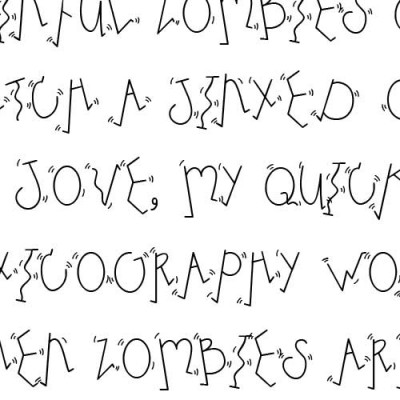 FUL ZOMBIES
ICH A JINXED
JOVE, MY QUICK
XICOGRAPHY WO
EN ZOMBIES AR